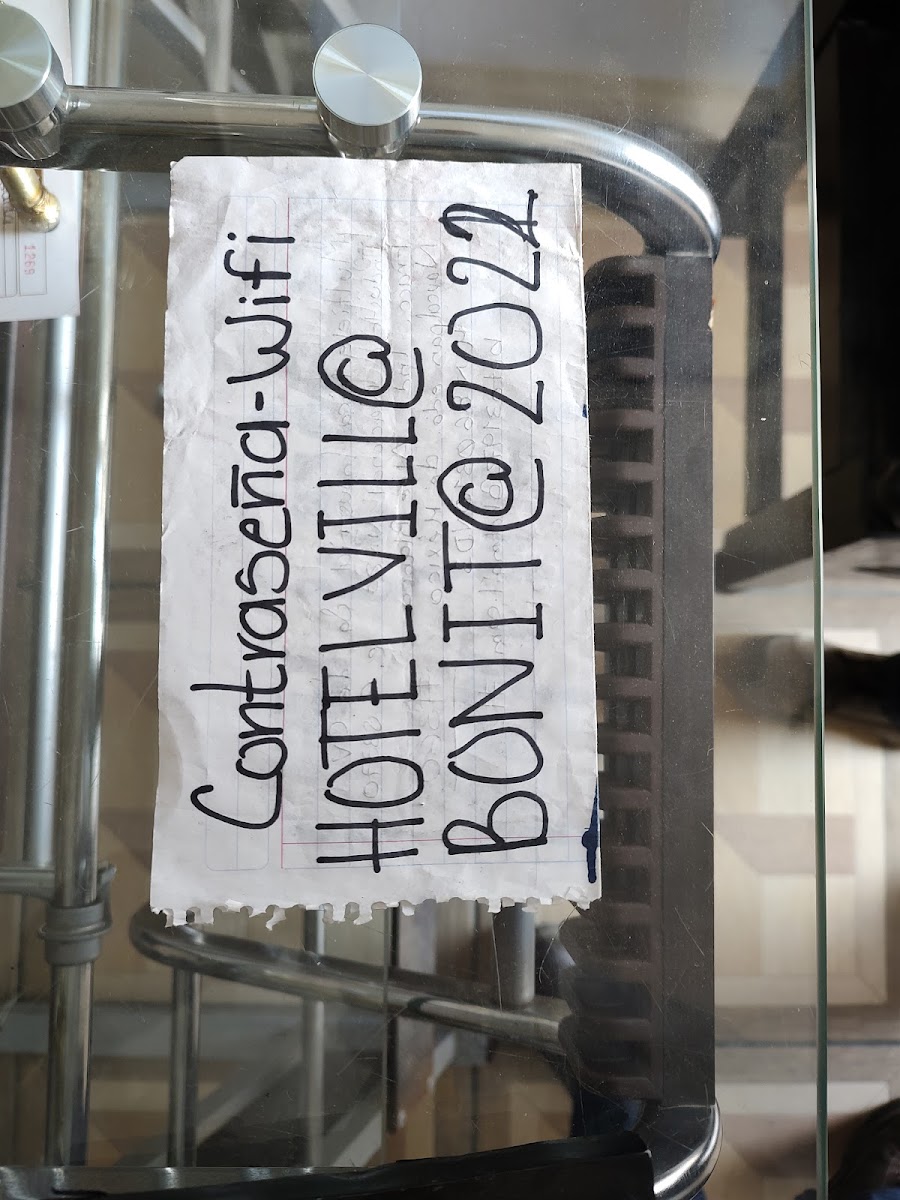 Contraseña-Wifi
HOTELVILL@
BONIT@2022
1269